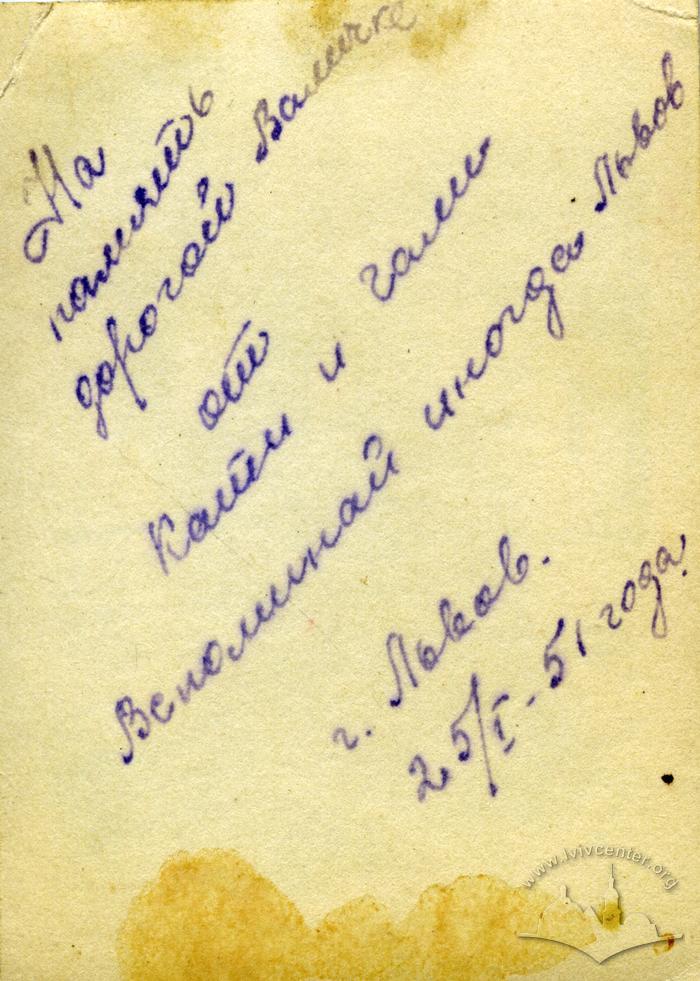 На
память
дорогой Валичке
от
Кати и гали
Вспоминай иногда Львов
г. Львов.
25/I - 51 года.
www.lvivcenter.org